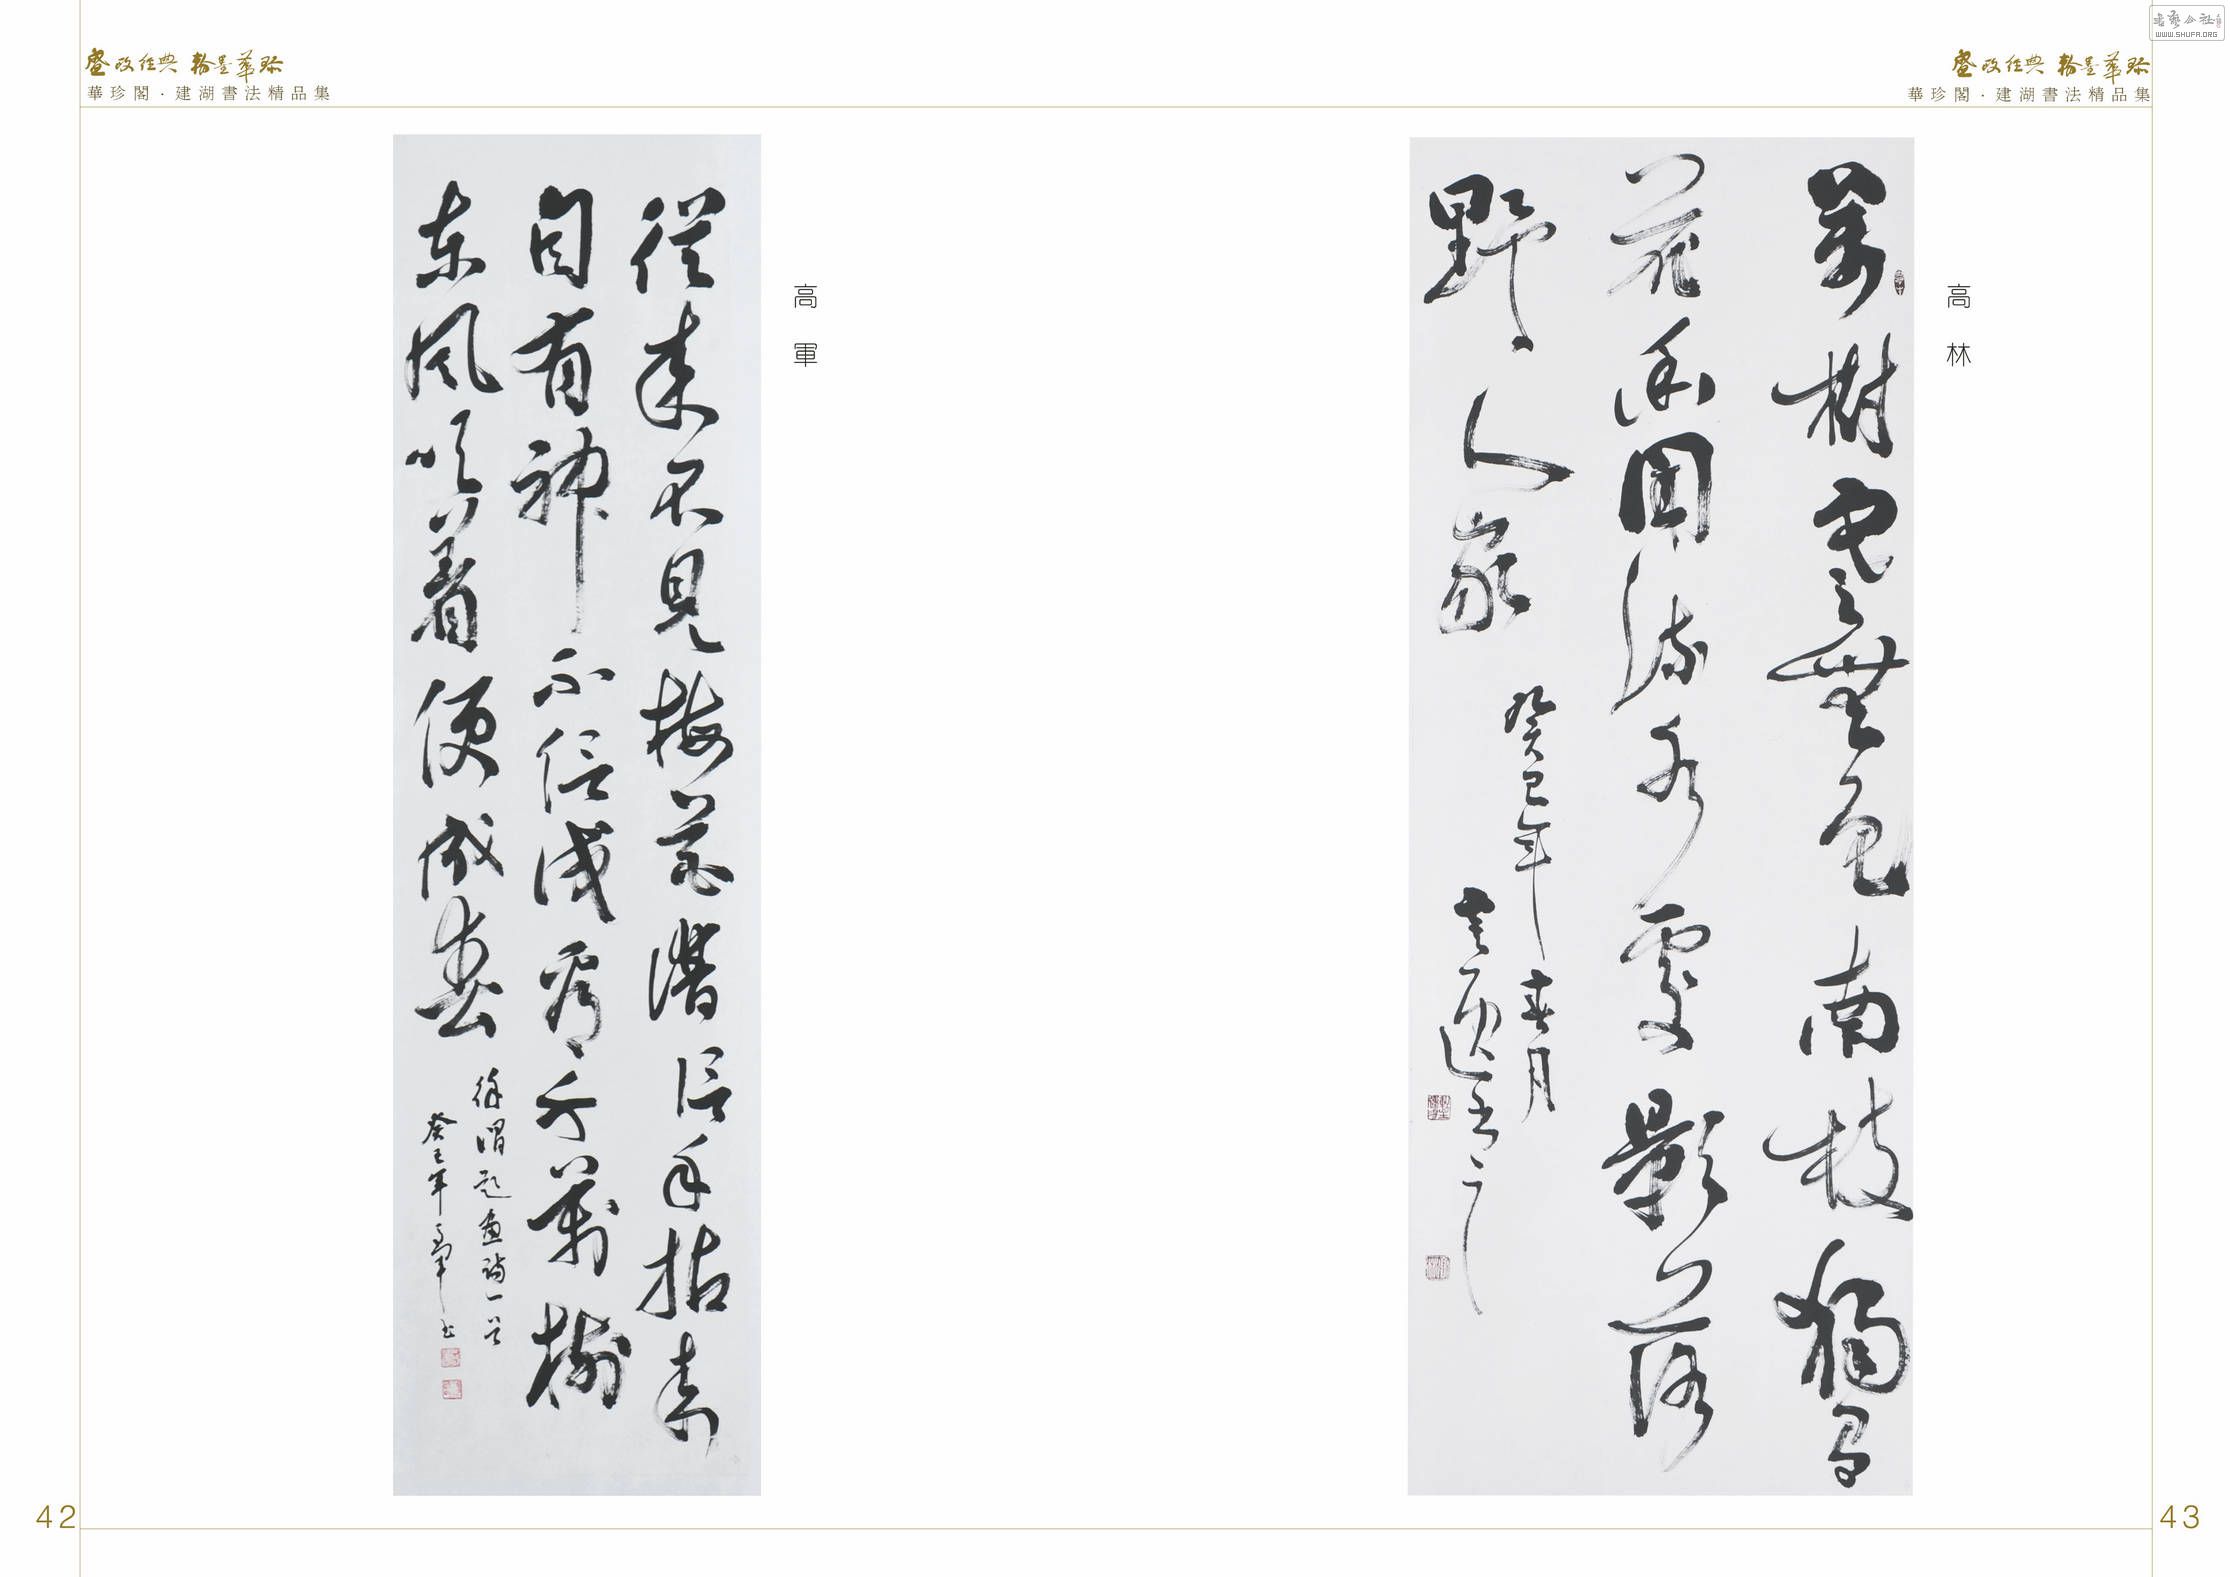 華珍閣·建湖書法精品集
高軍
從來不見梅花譜信手拈來
自有神不信試看千萬樹
東風吹著便成春
徐渭題畫詩一首
癸巳年高軍書
42
華珍閣·建湖書法精品集
WWW.SHUFA.ORG
高林
萬樹寒無色南枝獨有
花香聞流水處影落
野人家
癸巳年春月
43